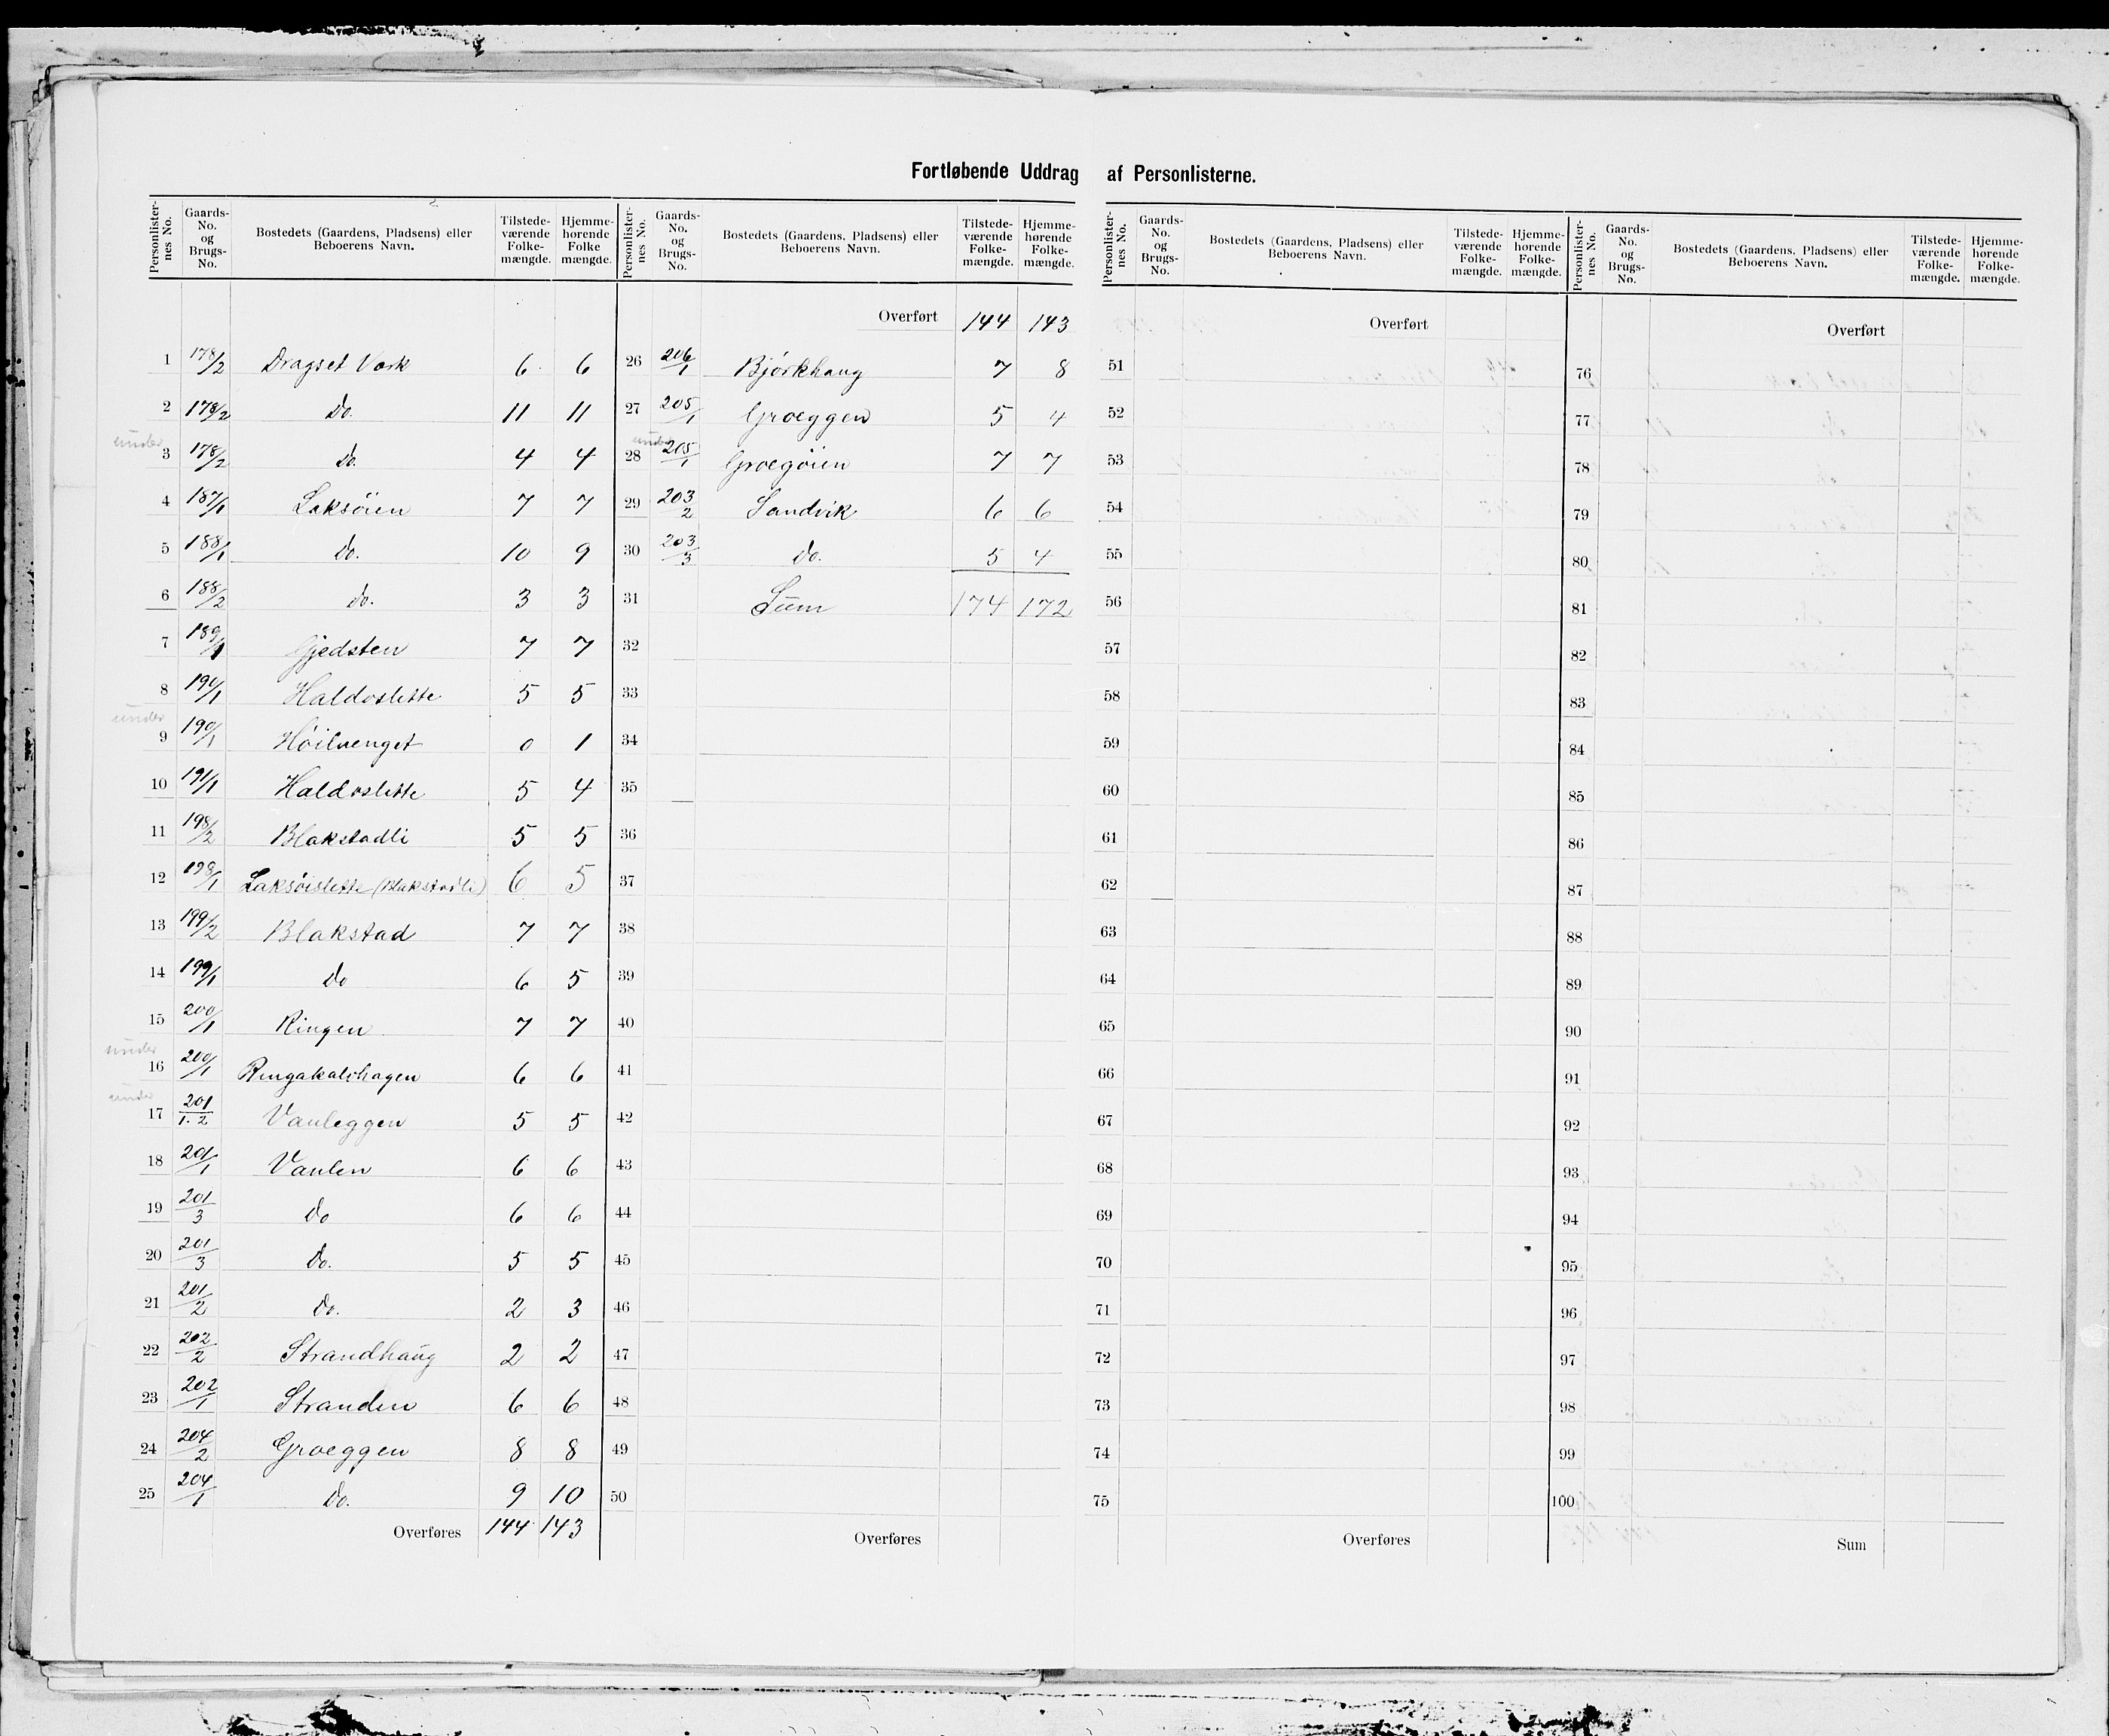 Fortløbende Uddrag af Personlisterne.
Personlisternes No. | Gaards-No. og Brugs-No. | Bostedets (Gaardens, Pladsens) eller Beboerens Navn. | Tilstedeværende Folkemængde. | Hjemmehørende Folkemængde.
1 178/2 Dragset Værk 6 6
2 178/2 Do. 11 11
under 3 178/2 Do. 4 4
4 187/1 Laksöien 7 7
5 188/1 Do. 10 9
6 188/2 Do. 3 3
7 189/1 Gjedsten 7 7
8 194/1 Haldoslette 5 5
under 9 190/1 Höilvenget 0 1
10 191/1 Haldoslette 5 4
11 198/2 Blakstadli 5 5
12 198/1 Laksöislette (Blakstadli) 6 5
13 199/2 Blakstad 7 7
14 199/1 Do 6 5
15 200/1 Ringen 7 7
under 16 200/1 6 6
under 17 201/1.2 Vauleggen 5 5
18 201/1 Vaulen 6 6
19 201/3 Do 6 6
20 201/3 Do. 5 5
21 201/2 Do. 2 3
22 202/2 Strandhaug 2 2
23 202/1 Stranden 6 6
24 204/2 Groeggen 8 8
25 204/1 Do. 9 10
Overføres 144 143
Personlisternes No. | Gaards-No. og Brugs-No. | Bostedets (Gaardens, Pladsens) eller Beboerens Navn. | Tilstedeværende Folkemængde. | Hjemmehørende Folkemængde.
Overført 144 143
26 206/1 Bjørkhaug 7 8
27 205/1 Groeggen 5 4
under 28 205/1 Groegöien 7 7
29 203/2 Sandvik 6 6
30 203/3 Do. 5 4
31 Sum 174 172
32
33
34
35
36
37
38
39
40
41
42
43
44
45
46
47
48
49
50
Overføres
Personlisternes No. | Gaards-No. og Brugs-No. | Bostedets (Gaardens, Pladsens) eller Beboerens Navn. | Tilstedeværende Folkemængde. | Hjemmehørende Folkemængde.
Overført
51
52
53
54
55
56
57
58
59
60
61
62
63
64
65
66
67
68
69
70
71
72
73
74
75
Overføres
Personlisternes No. | Gaards-No. og Brugs-No. | Bostedets (Gaardens, Pladsens) eller Beboerens Navn. | Tilstedeværende Folkemængde. | Hjemmehørende Folkemængde.
Overført
76
77
78
79
80
81
82
83
84
85
86
87
88
89
90
91
92
93
94
95
96
97
98
99
100
Sum